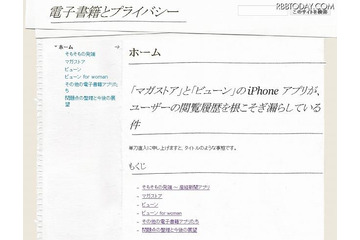 RBBTODAY.COM
電子書籍とプライバシー
このサイトを検索
ホーム
そもそもの発端
マガストア
ビューン
ビューン for women
その他の電子書籍アプリたち
問題点の整理と今後の展望
ホーム
「マガストア」と「ビューン」の iPhone アプリが、
ユーザーの閲覧履歴を根こそぎ漏らしている
件
単刀直入に申し上げますと、タイトルのような事態です。
もくじ
そもそもの発端 ～ 産経新聞アプリ
マガストア
ビューン
ビューン for women
その他の電子書籍アプリたち
問題点の整理と今後の展望